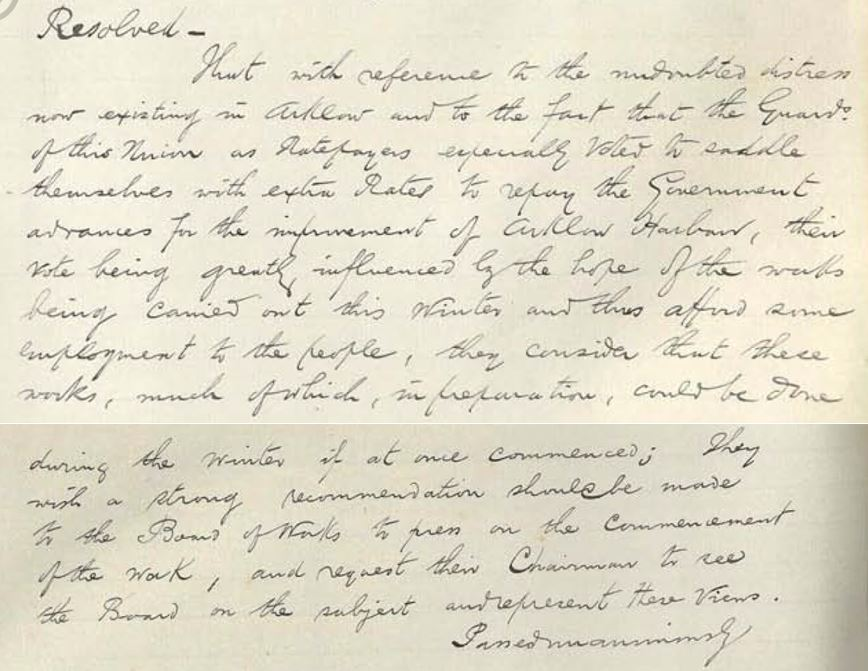 Resolved -
That with reference to the undoubted distress
now existing in Arklow and to the fact that the Guard.s
of this Union as Ratepayers especially Voted to saddle
themselves with extra Rates to repay the Government
advances for the improvement of Arklow Harbour, their
vote being greatly influenced by the hope of the works
being carried out this Winter and thus afford some
employment to the people, they consider that these
works, much of which, in preparation, could be done
during the Winter if at once commenced; They
wish a strong recommendation should be made
to the Board of Works to press on the Commencement
of the Work, and request their Chairman to see
the Board on the subject and represent these Views.
Passed unanimously